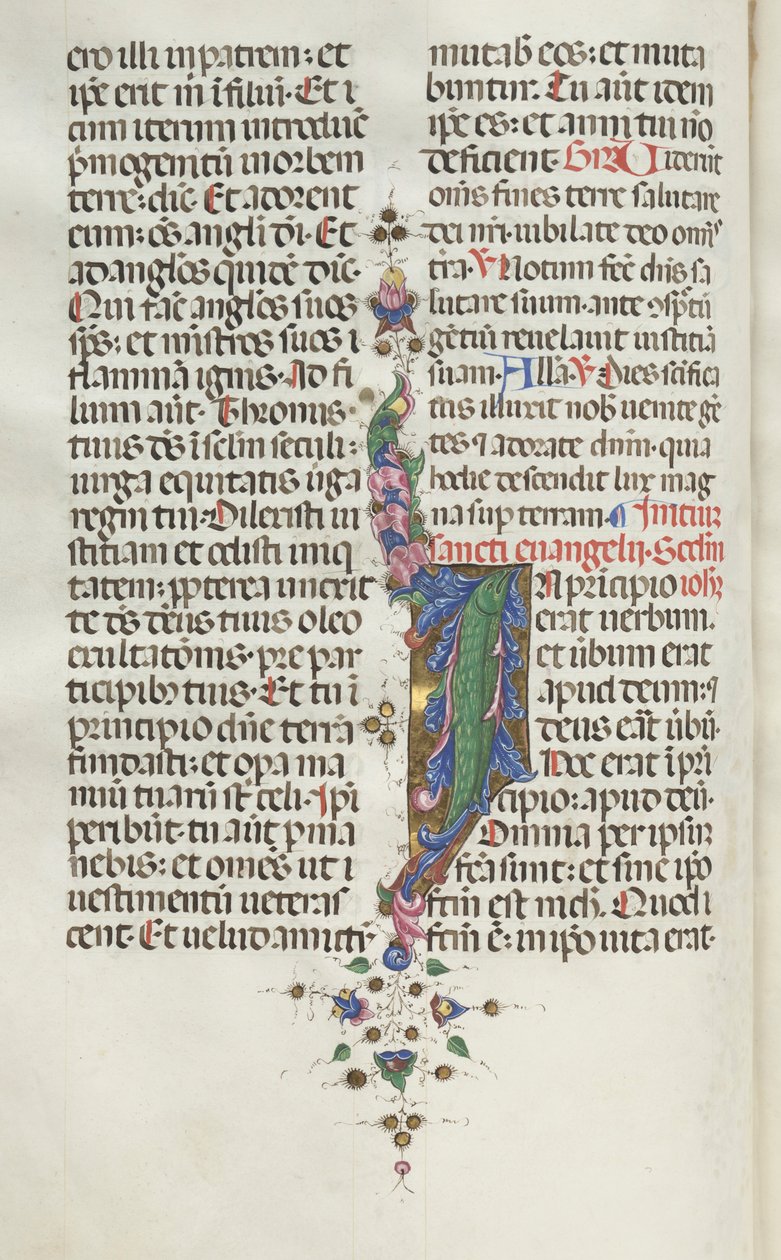 ero illi in patrem: et
ip̄e erit m̄ i filiū. Et
cum iterum introduc̄
p̄mogenitū in orbem
terre: dic̄. Et adorent
eum: oēs angli dī. Et
ad angl̄os quidē dic̄.
Qui fac̄ angl̄os suos
sp̄s: et mīstros suos i
flammā ignis. Ad fi
lium aūt. Thronus
tuus ds̄ i sclm̄ seculi:
uirga equitatis ūga
regni tui. Dilexisti iu
stitiam et odisti iniq
tatem: pp̄terea unxit
te ds̄ deus tuus oleo
exultatōnis. pre par
ticipibꝰ tuis. Et tu ī
principio dn̄e terrā
fundasti: et oꝑa ma
nuū tuarū st̄ celi. Ipi
peribūt. tu aūt ꝑma
nebis: et omēs ut i
uestimentū ueteras
cent. Et uelud amictū
mutab̄ eos: et muta
buntur. Tu aūt idem
ip̄e es: et anni tui nō
deficient. Gr̄ Uiderūt
om̄s fines terre salutare
dei nr̄i. iubilate deo omīs
tr̄a. ℣ Notum fec̄ dn̄s sa
lutare suum. ante ꝯspc̄tū
gētiū reuelauit iustitiā
suam. All̄a. ℣ Dies sc̄ifica
tus illuxit nob̄ uenite gē
tes ⁊ adorate dn̄m. quia
hodie descendit lux mag
na sup̄ terram. Initiū
sancti euangelij. Scd̄m
IN principio ioh̄ē
erat uerbum.
et ūbum erat
apud deum: ⁊
deus eāt ūbū.
Hoc erat ī pri
cipio: apud deū.
Omnia per ipsū
fc̄a sunt: et sine ip̄o
fc̄m est nich̄. Quod
fc̄m ē: in ip̄o uita erat.